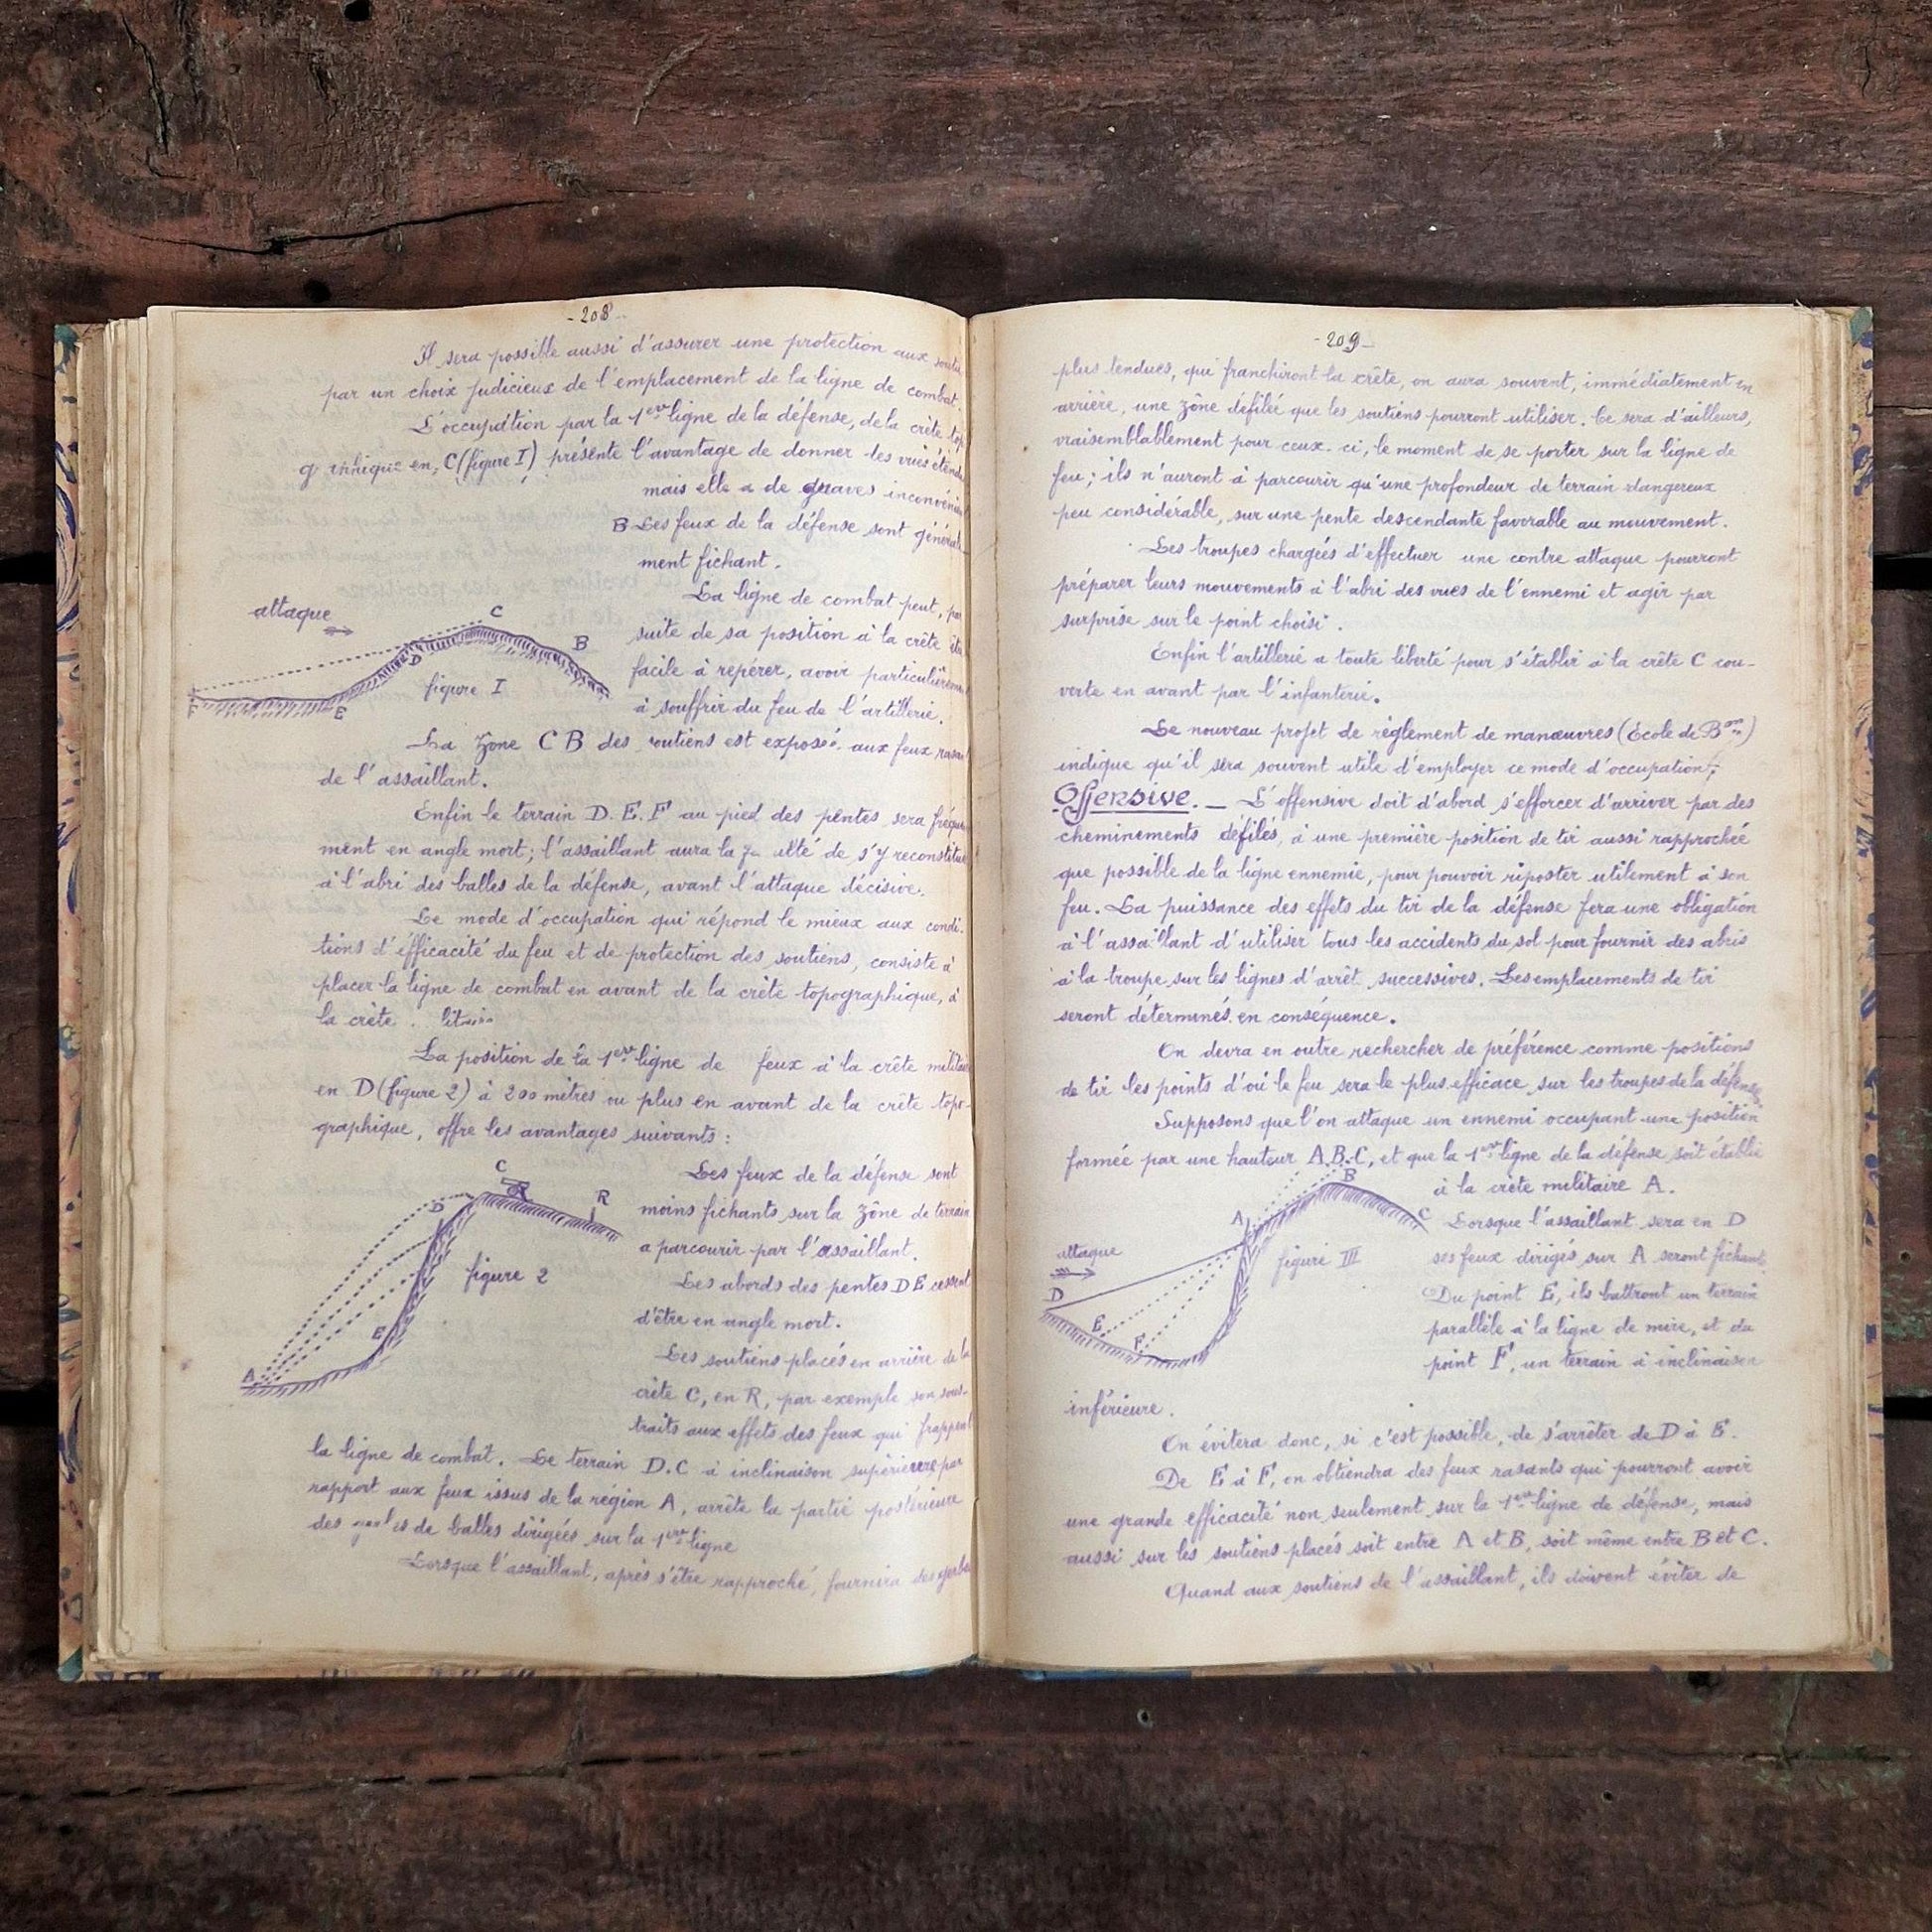 - 208 -
Il sera possible aussi d'assurer une protection aux
par un choix judicieux de l'emplacement de la ligne de combat.
L'occupation par la 1ère ligne de la défense, de la crête
en, C (figure I) présente l'avantage de donner des vues
mais elle a de graves
B Les feux de la défense sont
ment fichant.
La ligne de combat peut,
suite de sa position à la crête
facile à repérer, avoir
à souffrir du feu de l'artillerie.
attaque
C
B
D
figure I
F
E
La zone CB des soutiens est exposée aux feux
de l'assaillant.
Enfin le terrain D. E. F au pied des pentes sera
ment en angle mort; l'assaillant aura la de s'y
à l'abri des balles de la défense, avant l'attaque décisive.
Le mode d'occupation qui répond le mieux aux condi-
tions d'éfficacité du feu et de protection des soutiens, consiste à
placer la ligne de combat en avant de la crête topographique, à
la crête
La position de la 1ère ligne de feux à la crête
en D (figure 2) à 200 mètres ou plus en avant de la crête topo-
graphique, offre les avantages suivants :
Les feux de la défense sont
moins fichants sur la zône de terrain
a parcourir par l'assaillant.
Les abords des pentes DE cessent
d'être en angle mort.
Les soutiens placés en arrière de la
crête C, en R, par exemple son sous-
traits aux effets des feux qui frappent
C
R
D
figure 2
E
A
la ligne de combat. Le terrain D.C à inclinaison supérieure par
rapport aux feux issus de la région A, arrête la partie postérieure
des de balles dirigées sur la 1ère ligne
Lorsque l'assaillant, après s'être rapproché, fournira des
- 209 -
plus tendues, qui franchiront la crête, on aura souvent, immédiatement en
arrière, une zône défilée que les soutiens pourront utiliser. Ce sera d'ailleurs,
vraisemblablement pour ceux-ci, le moment de se porter sur la ligne de
feu; ils n'auront à parcourir qu'une profondeur de terrain dangereux
peu considérable, sur une pente descendante favorable au mouvement.
Les troupes chargées d'effectuer une contre attaque pourront
préparer leurs mouvements à l'abri des vues de l'ennemi et agir par
surprise sur le point choisi.
Enfin l'artillerie a toute liberté pour s'établir à la crête C cou-
verte en avant par l'infanterie.
Le nouveau projet de règlement de manœuvres (École de Bon)
indique qu'il sera souvent utile d'employer ce mode d'occupation.
Offensive. _ L'offensive doit d'abord s'efforcer d'arriver par des
cheminements défilés, à une première position de tir aussi rapprochée
que possible de la ligne ennemie, pour pouvoir riposter utilement à son
feu. La puissance des effets du tir de la défense fera une obligation
à l'assaillant d'utiliser tous les accidents du sol pour fournir des abris
à la troupe sur les lignes d'arrêt successives. Les emplacements de tir
seront déterminés en conséquence.
On devra en outre rechercher de préférence comme positions
de tir les points d'où le feu sera le plus efficace sur les troupes de la défense
Supposons que l'on attaque un ennemi occupant une position
formée par une hauteur A.B.C, et que la 1ère ligne de la défense soit établie
à la crête militaire A.
Lorsque l'assaillant sera en D
ses feux dirigés sur A seront fichant.
Du point E, ils battront un terrain
parallèle à la ligne de mire, et du
point F, un terrain à inclinaison
B
A
C
attaque
figure III
D
E
F
inférieure.
On évitera donc, si c'est possible, de s'arrêter de D à E.
De E à F, on obtiendra des feux rasants qui pourront avoir
une grande efficacité non seulement sur la 1ère ligne de défense, mais
aussi sur les soutiens placés soit entre A et B, soit même entre B et C.
Quand aux soutiens de l'assaillant, ils doivent éviter de